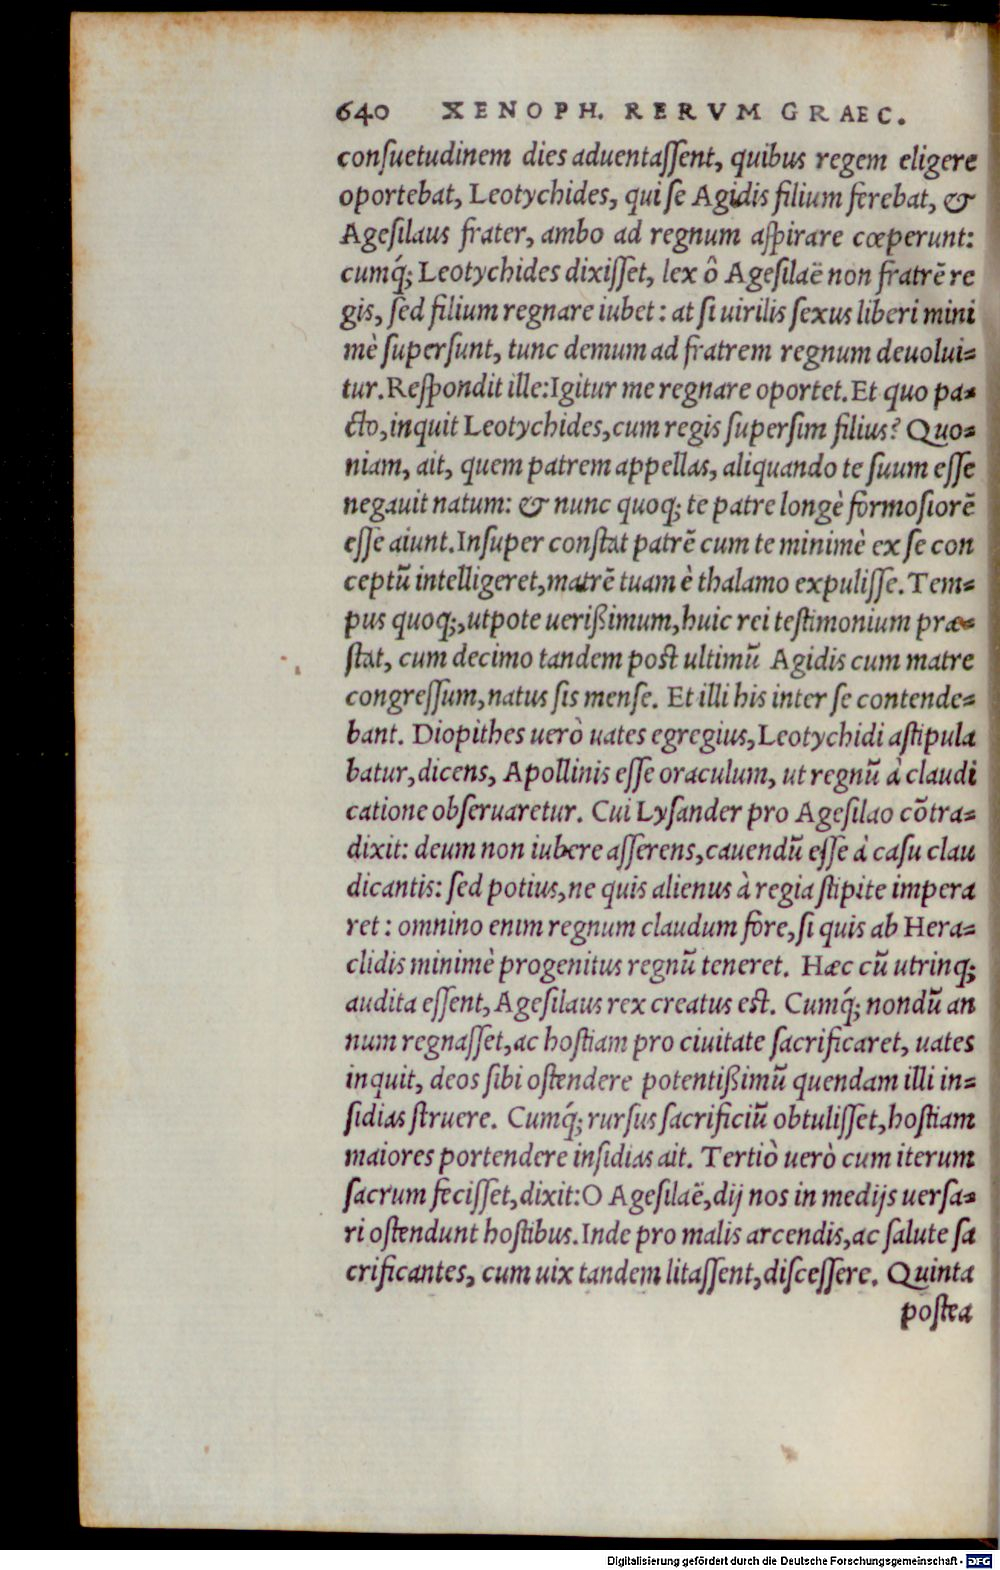 640 XENOPH. RERVM GRAEC.
conſuetudinem dies aduentaſſent, quibus regem eligere
oportebat, Leotychides, qui ſe Agidis filium ferebat, &
Ageſilaus frater, ambo ad regnum aſpirare cœperunt:
cumq́; Leotychides dixiſſet, lex ô Ageſilaë non fratrē re
gis, ſed filium regnare iubet: at ſi uirilis ſexus liberi mini
mè ſuperſunt, tunc demum ad fratrem regnum deuolui-
tur. Reſpondit ille: Igitur me regnare oportet. Et quo pa-
cto, inquit Leotychides, cum regis ſuperſim filius? Quo-
niam, ait, quem patrem appellas, aliquando te ſuum eſſe
negauit natum: & nunc quoq; te patre longè formoſiorē
eſſe aiunt. Inſuper conſtat patrē cum te minimè ex ſe con
ceptū intelligeret, matrē tuam è thalamo expuliſſe. Tem-
pus quoq;, utpote ueriſſimum, huic rei teſtimonium præ-
ſtat, cum decimo tandem poſt ultimū Agidis cum matre
congreſſum, natus ſis menſe. Et illi his inter ſe contende-
bant. Diopithes uerò uates egregius, Leotychidi aſtipula
batur, dicens, Apollinis eſſe oraculum, ut regnū à claudi
catione obſeruaretur. Cui Lyſander pro Ageſilao cōtra-
dixit: deum non iubere aſſerens, cauendū eſſe à caſu clau
dicantis: ſed potius, ne quis alienus à regia ſtipite impera
ret: omnino enim regnum claudum fore, ſi quis ab Hera-
clidis minimè progenitus regnū teneret. Hæc cū utrinq;
audita eſſent, Ageſilaus rex creatus eſt. Cumq́; nondū an
num regnaſſet, ac hoſtiam pro ciuitate ſacrificaret, uates
inquit, deos ſibi oſtendere potentiſſimū quendam illi in-
ſidias ſtruere. Cumq́; rurſus ſacrificiū obtuliſſet, hoſtiam
maiores portendere inſidias ait. Tertiò uerò cum iterum
ſacrum feciſſet, dixit: O Ageſilaë, dij nos in medijs uerſa-
ri oſtendunt hoſtibus. Inde pro malis arcendis, ac ſalute ſa
crificantes, cum uix tandem litaſſent, diſceſſere. Quinta
poſtea
Digitalisierung gefördert durch die Deutsche Forschungsgemeinschaft - DFG